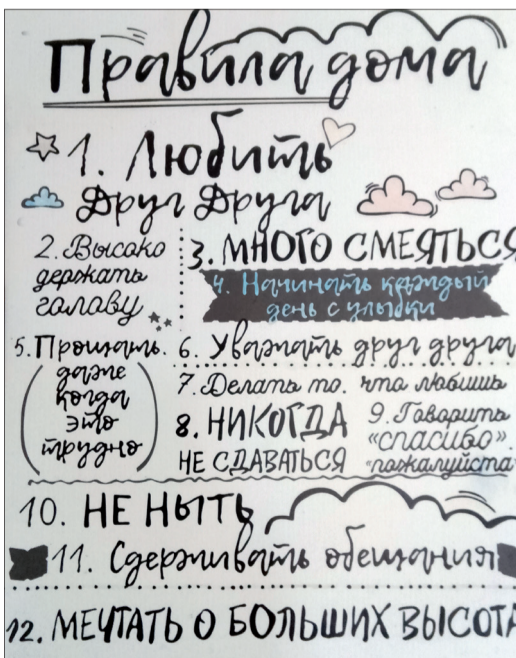 Правила дома
1. Любить
Друг Друга
2. Высоко
держать
голову
3. МНОГО СМЕЯТЬСЯ
4. Начинать каждый
день с улыбки
5. Прощать.
(даже
когда
это
трудно)
6. Уважать друг друга
7. Делать то. что любишь
8. НИКОГДА
НЕ СДАВАТЬСЯ
9. Говорить
«СПАСИБО».
"пожалуйста
10. НЕ НЫТЬ
11. Сдерживать обещания
12. МЕЧТАТЬ О БОЛЬШИХ ВЫСОТА